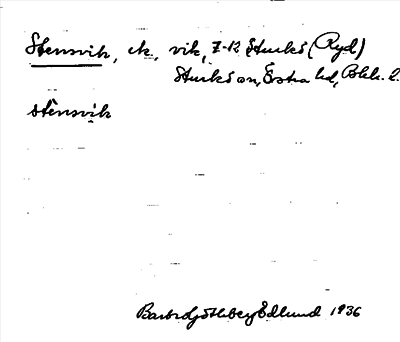 Stensvik, ek., vik, 7-13 Sturkö (Ryd)
Sturkö sn, Östra hd, Blek. l.
stensvik
Barbro Götheberg Edlund 1936